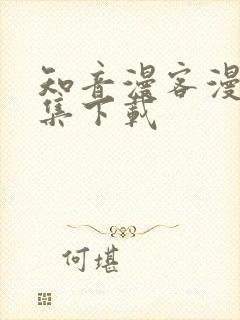 知音漫客漫
集下载
何堪